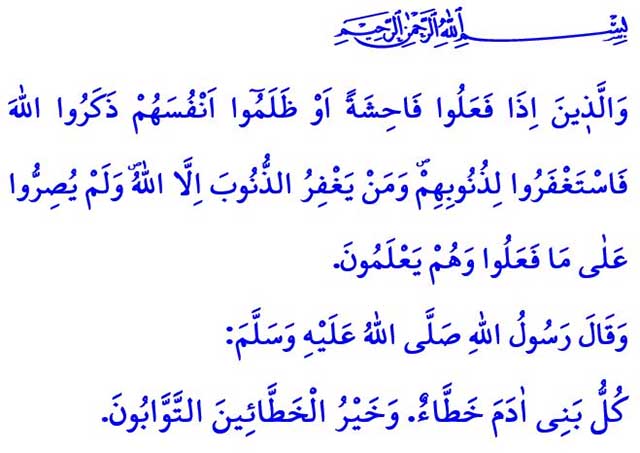 بِسْمِ اللهِ الرَّحْمٰنِ الرَّحِيمِ
وَالَّذ۪ينَ اِذَا فَعَلُوا فَاحِشَةً اَوْ ظَلَمُٓوا اَنْفُسَهُمْ ذَكَرُوا اللهَ
فَاسْتَغْفَرُوا لِذُنُوبِهِمْۖ وَمَنْ يَغْفِرُ الذُّنُوبَ اِلَّا اللهُۖ وَلَمْ يُصِرُّوا
عَلٰى مَا فَعَلُوا وَهُمْ يَعْلَمُونَ.
وَقَالَ رَسُولُ اللهِ صَلَّى اللهُ عَلَيْهِ وَسَلَّمَ:
كُلُّ بَنِى اٰدَمَ خَطَّاءٌ. وَخَيْرُ الْخَطَّائِينَ التَّوَّابُونَ.